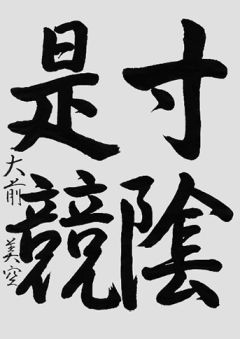 寸陰
是競
大前美空